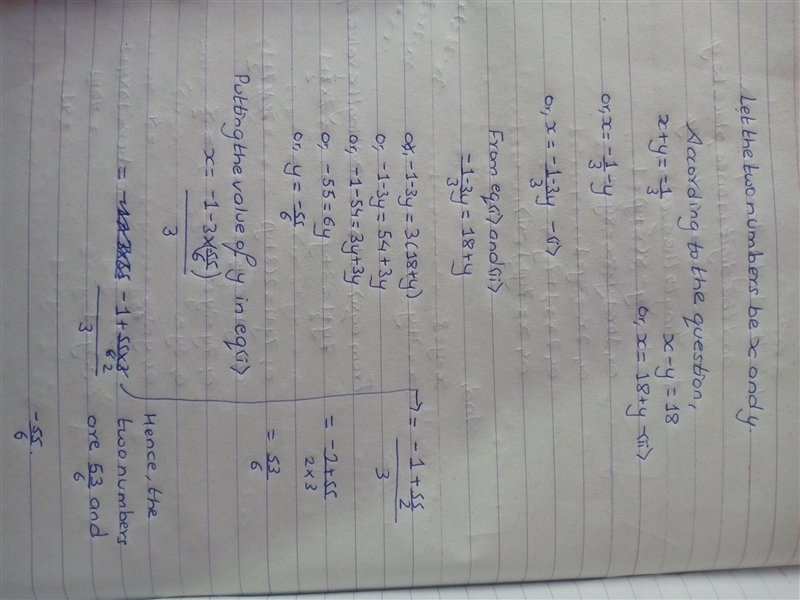 Let the two numbers be x and y.
According to the question,
x+y = -1/3
x-y = 18
or, x = -1/3 - y
or, x = 18+y -(ii)
or, x = (-1-3y)/3 -(i)
From eq(i) and (ii)
(-1-3y)/3 = 18+y
or, -1-3y = 3(18+y)
or, -1-3y = 54+3y
or, -1-54 = 3y+3y
or, -55 = 6y
or, y = -55/6
Putting the value of y in eq(i)
x = (-1-3×(55/6))/3
= (-1+55×3/6 2)/3
= (-1+55/2)/3
= (-2+55)/(2×3)
= 53/6
Hence, the
two numbers
are 53/6 and
-55/6.